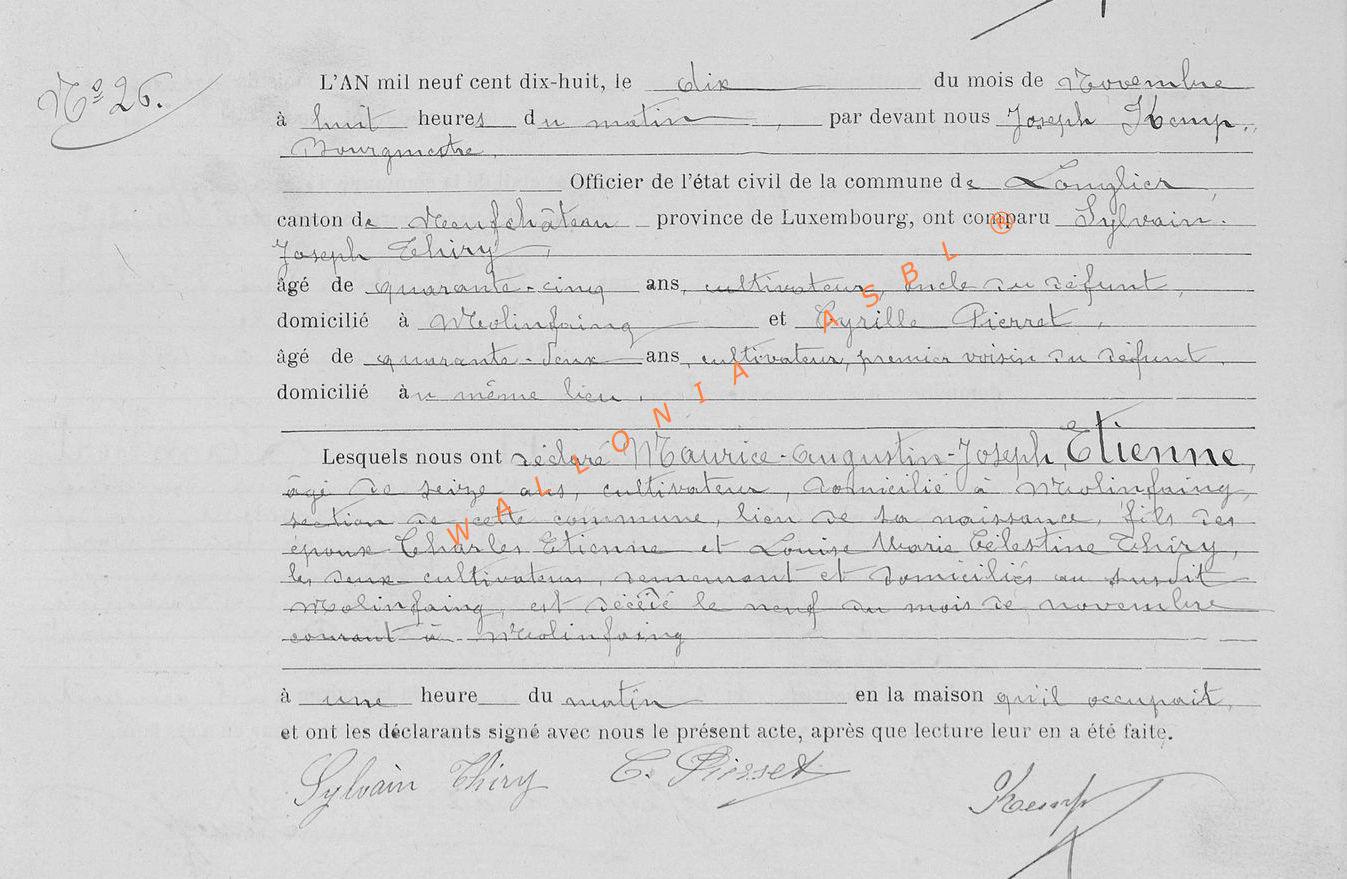 Nº 26.
L'AN mil neuf cent dix-huit, le dix du mois de Novembre
à huit heures du matin, par devant nous Joseph Kemp,
Bourgmestre,
Officier de l'état civil de la commune de Longlier,
canton de Neufchâteau province de Luxembourg, ont comparu Sylvain-
Joseph Thiry,
âgé de quarante-cinq ans, cultivateur, oncle du défunt,
domicilié à Molinfaing et Cyrille Pierret,
âgé de quarante-deux ans, cultivateur, premier voisin du défunt,
domicilié au même lieu,
Lesquels nous ont déclaré Maurice-Augustin-Joseph Etienne,
âgé de seize ans, cultivateur, domicilié à Molinfaing,
section de cette commune, lieu de sa naissance, fils des
époux Charles Etienne et Louise Marie Célestine Thiry,
les deux cultivateurs, demeurant et domiciliés au susdit
Molinfaing, est décédé le neuf du mois de novembre
courant à Molinfaing
à une heure du matin en la maison qu'il occupait,
et ont les déclarants signé avec nous le présent acte, après que lecture leur en a été faite.
Sylvain Thiry C. Pierret Kemp
WALLONIA ASBL ®